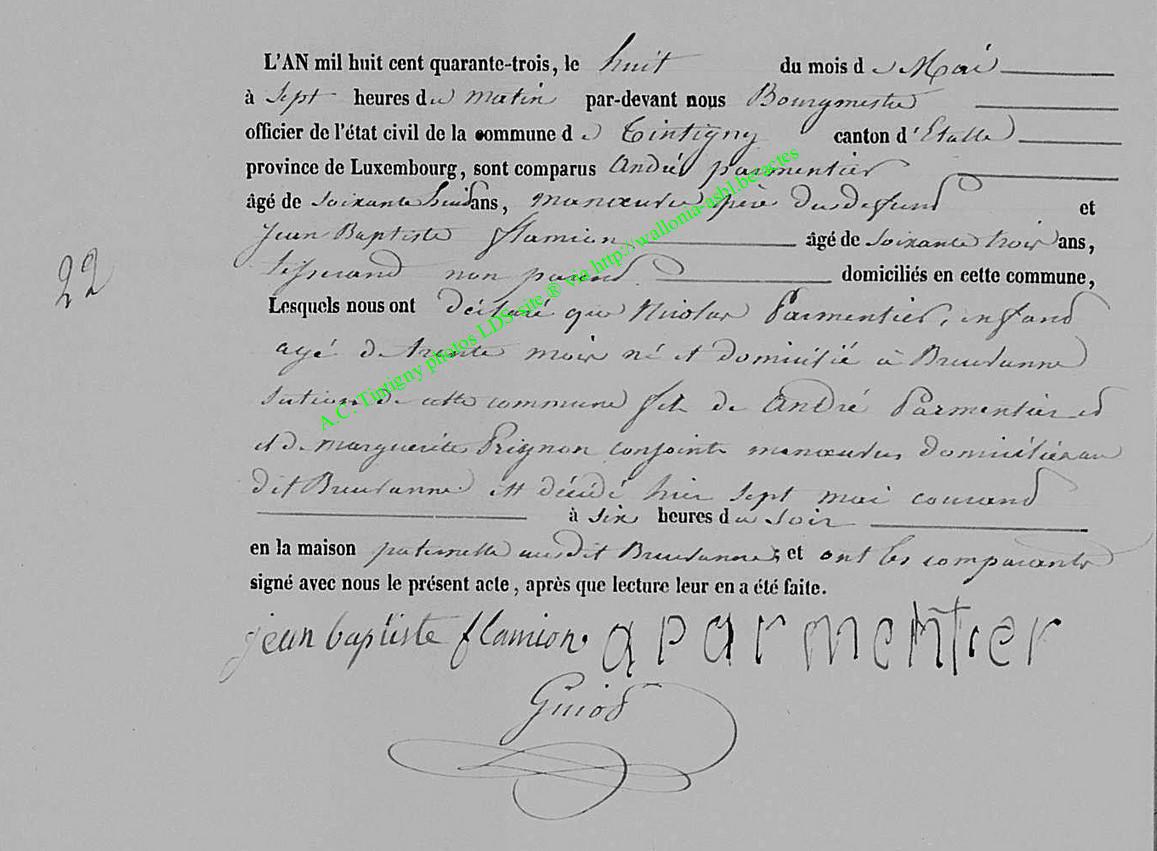 L'AN mil huit cent quarante-trois, le huit du mois de Mai
à Sept heures du matin par-devant nous Bourgmestre
officier de l'état civil de la commune de Tintigny canton d'Etalle
province de Luxembourg, sont comparus André parmentier
âgé de soixante huit ans, manœuvre père du defund et
Jean Baptiste flamion âgé de soixante trois ans,
tisserand non parend domiciliés en cette commune,
22
Lesquels nous ont déclaré que Nicolas Parmentier, enfand
agé de trente mois né et domicilié à Breuvanne
section de cette commune fils de André Parmentier et
et de Marguerite Prignon conjoints manœuvres domiciliés au
dit Breuvanne est décédé hier sept mai courand
à six heures du soir
en la maison paternelle au dit Breuvanne; et ont les comparants
signé avec nous le présent acte, après que lecture leur en a été faite.
jean baptiste flamion. a parmentier
Guiot
A.C. Tintigny photos LDS site ® via http://wallonia-asbl.be/actes